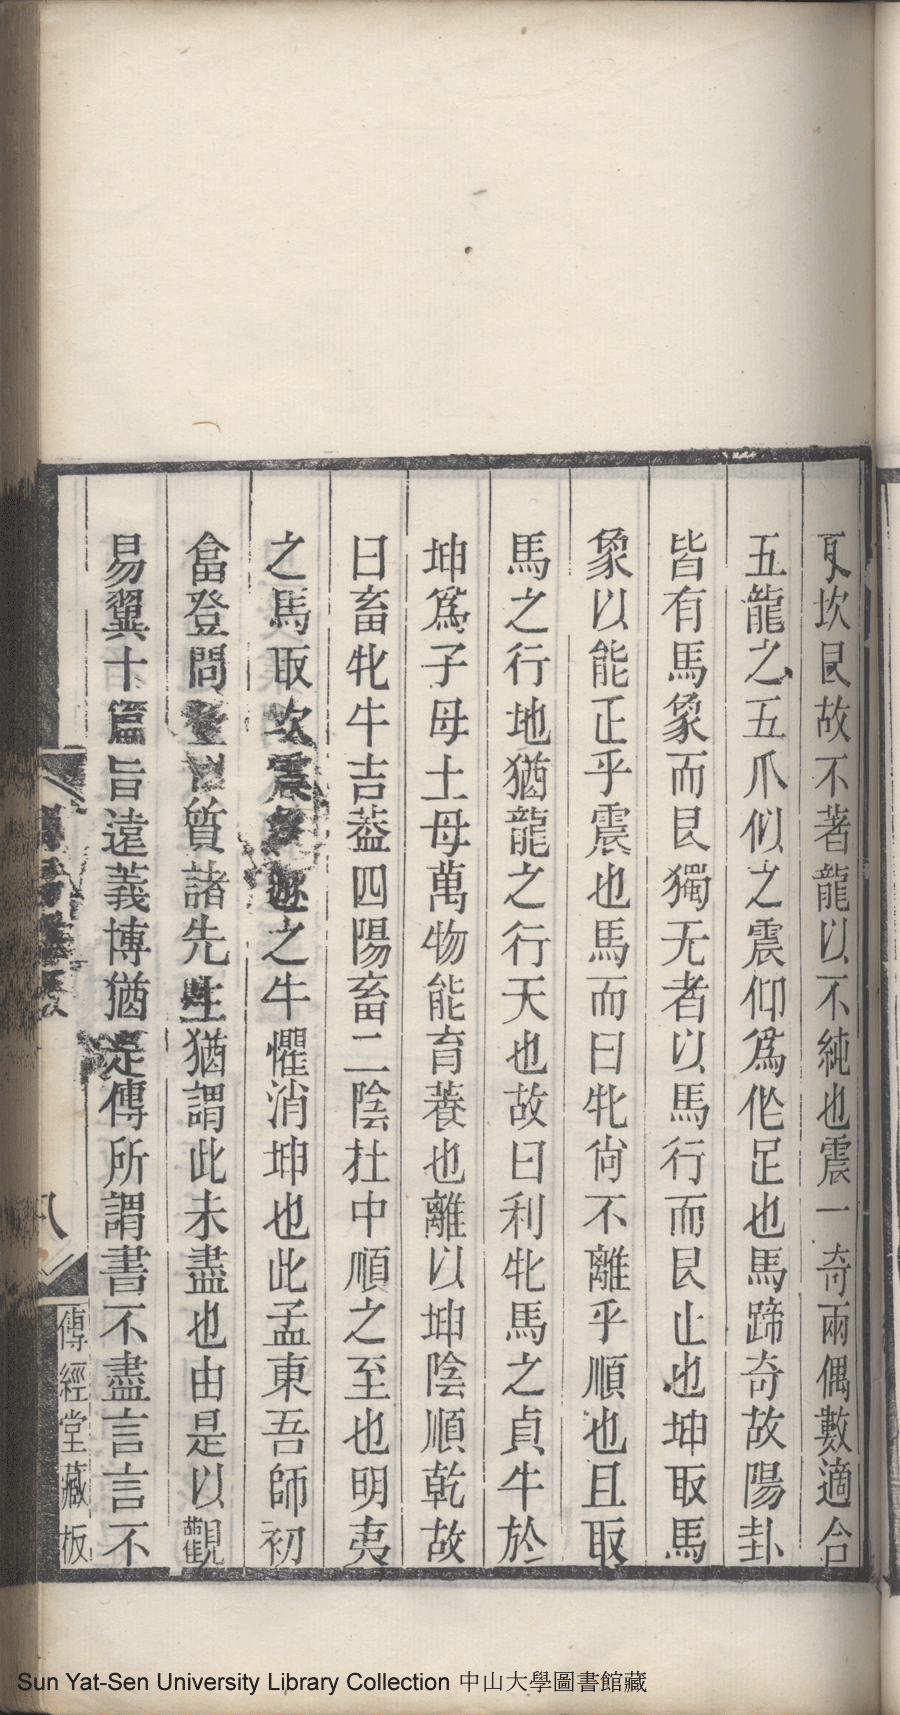 坎艮故不著龍以不純也震一奇兩偶數適合
五龍之五爪似之震仰爲作足也馬蹄奇故陽卦
皆有馬象而艮獨无者以馬行而艮止也坤取馬
象以能正乎震也馬而曰牝尚不離乎順也且取
馬之行地猶龍之行天也故曰利牝馬之貞牛於
坤爲子母土母萬物能育養也離以坤陰順乾故
曰畜牝牛吉葢四陽畜二陰杜中順之至也明夷
之馬取坎震之牛懼消坤也此孟東吾師初
畣登問質諸先生猶謂此未盡也由是以觀
易翼十篇旨遠義博猶是傳所謂書不盡言言不
八
傳經堂藏板
Sun Yat-Sen University Library Collection 中山大學圖書館藏